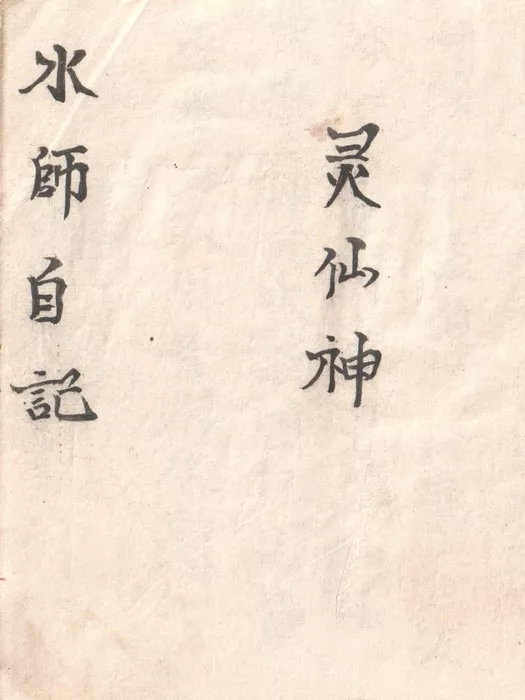 灵仙神
水師自記